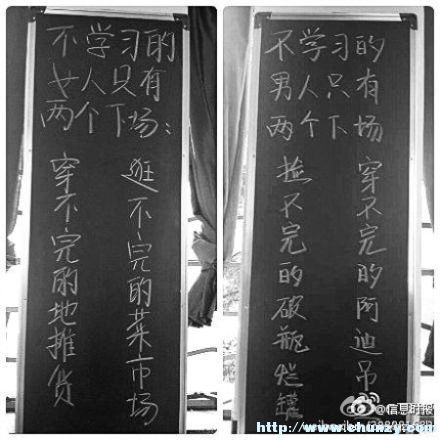 不学习的
女人只有
两个下场:
穿不完的地摊货
逛不完的菜市场
不学习的
男人只有
两个下场
捡不完的破瓶烂罐
穿不完的阿迪吊
@信息时报
http://www.chunzy.com